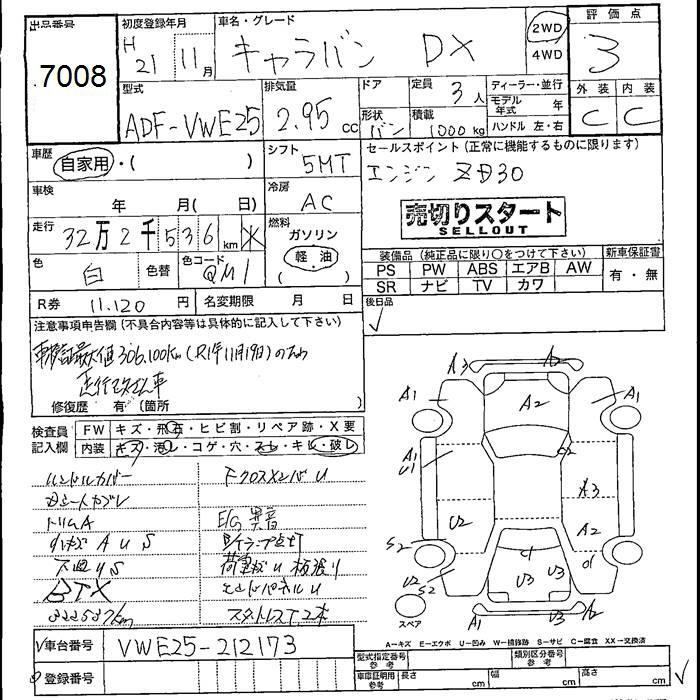 出品番号 初度登録年月 車名・グレード 評価点
7008
H 21 11月 キャラバン DX 2WD 4WD 3
型式 排気量 ドア 定員 ディーラー・並行 外装 内装
ADF-VWE25 2.95cc 3人 モデル年式 年 C C
形状 積載 ハンドル 左・右
バン 1000kg
車歴 シフト セールスポイント(正常に機能するものに限ります)
自家用・( ) 5MT エンジン ZD30
車検 冷房
年 月( 日) AC
売切りスタート
SELLOUT
走行 燃料
32万2千536km ガソリン
軽油
( )
装備品(純正品に限り○をつけて下さい) 新車保証書
PS PW ABS エアB AW 有・無
SR ナビ TV カワ
色 白 色替 色コード QM1
R券 11,120円 名変期限 月 日 後日品
注意事項申告欄(不具合内容等は具体的に記入して下さい)
306,100km (R1年11月19日)のため
修復歴 有(箇所
検査員記入欄 FW キズ・飛石・ヒビ割・リペア跡・X要
内装 キズ・汚レ・コゲ・穴・スレ・キレ・破レ
ハンドルカバー FクロスメンバU
トリムA E/G異音
AUS
下廻りS 荷室 U 板張り
エンドパネルU
スタットレスT2本
A3 A2
A1 A2 A1
A1 U1
A3
U2 A2
S2
U2 S2 U3 U3
U3 A2
スペア
A-キズ E-エクボ U-凹み W-補修跡 S-サビ C-腐食 XX-交換済
車台番号 VWE25-212173
型式指定番号 参考 類別区分番号 参考
登録番号 車庫証明用 参考 長さ cm 幅 cm 高さ cm